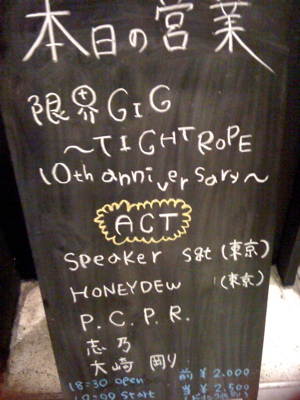 本日の営業
限界GIG
〜TIGHTROPE
10th anniversary〜
ACT
Speaker sgt (東京)
HONEYDEW (東京)
P.C.P.R.
志乃
大崎 剛り
18:30 open 前 ¥2.000
19:00 start 当 ¥2.500